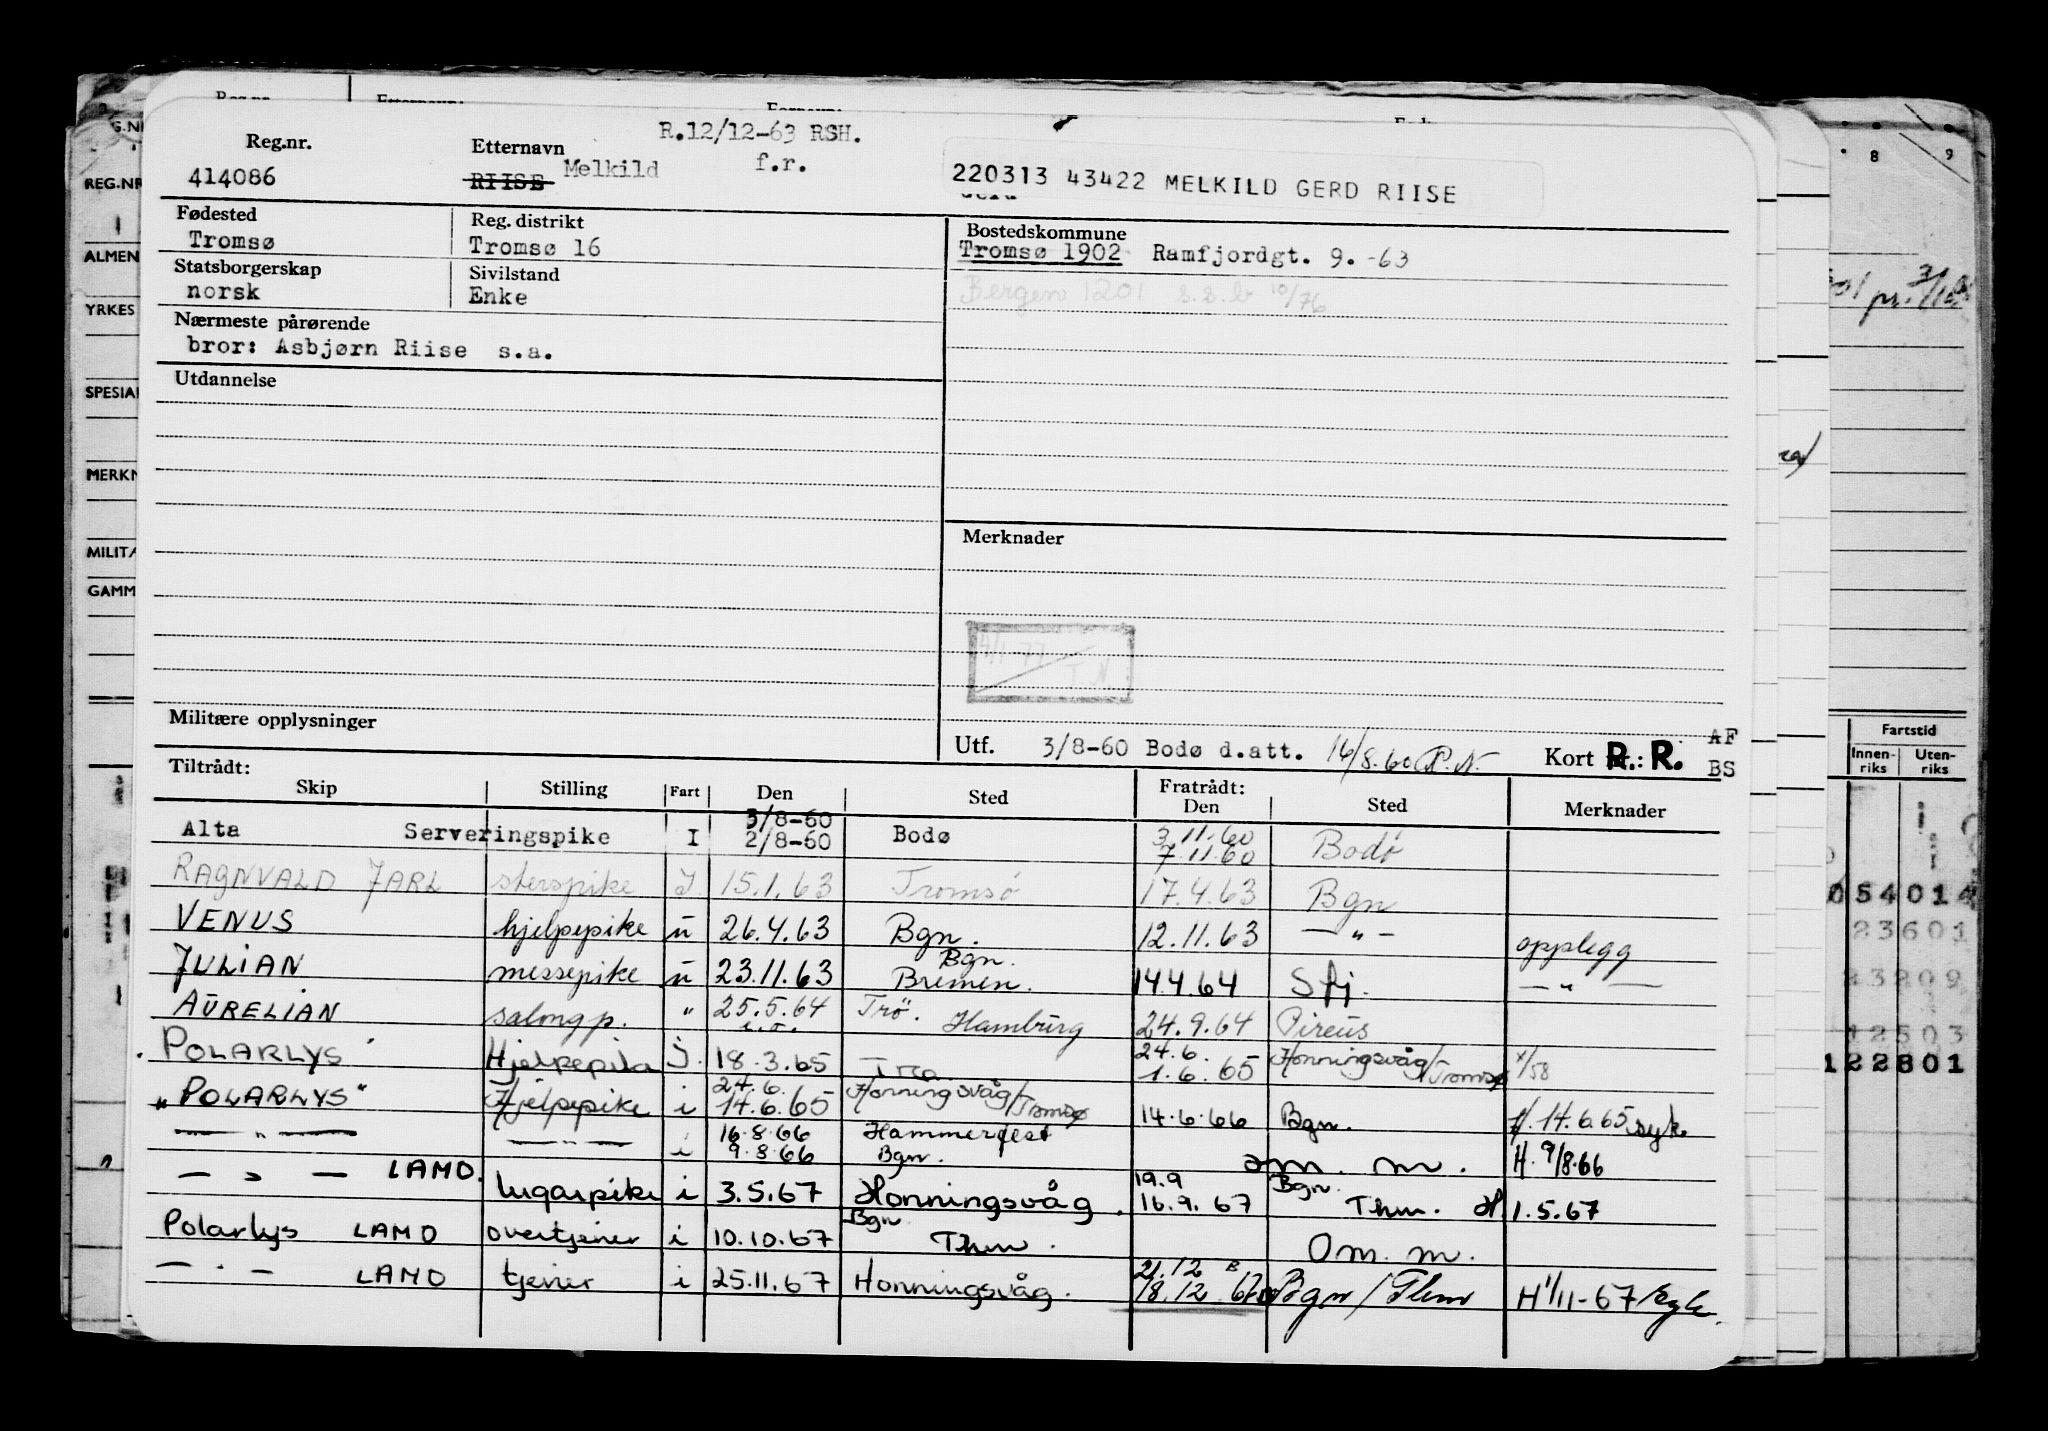 R.12/12-63 RSH.
Reg.nr. Etternavn
414086 RIISE Melkild f.r. 220313 43422 MELKILD GERD RIISE
Fødested Reg. distrikt Bostedskommune
Tromsø Tromsø 16 Tromsø 1902 Ramfjordgt. 9. -63
Statsborgerskap Sivilstand
norsk Enke Bergen 1201 s.s.b 10/76
Nærmeste pårørende
bror: Asbjørn Riise s.a.
Utdannelse
Merknader
4/1 77
T.N.
Militære opplysninger
Utf. 3/8-60 Bodø d.att. 16/8.60 P.N. Kort R.: R. AF
BS
Tiltrådt: Fratrådt:
Skip Stilling Fart Den Sted Den Sted Merknader
Alta Serveringspike I 3/8-60 2/8-60 Bodø 3.11.60 7.11.60 Bodø
RAGNVALD JARL sterspike I. 15.1.63 Tromsø 17.4.63 Bgn
VENUS hjelpepike u 26.4.63 Bgn. 12.11.63 — " — opplegg
JULIAN messepike u 23.11.63 Bgn. Bremen. 14.4.64 Sfj. — " —
AURELIAN salongp. " 25.5.64 Trö. Hamburg 24.9.64 Pireus
POLARLYS Hjelpepike i. 18.3.65 24.6. 1.6.65 Honningsvåg/Tromsø x/58
"POLARLYS" Hjelpepike i 24.6. 14.6.65 Honningsvåg/Tromsø 14.6.66 Bgn. H.14.6.65 syk
— " — — " — i 16.8.66 9.8.66 Hammerfest Bgn. om. m. H. 9/8.66
— " — LAMO. lugarpike i 3.5.67 Honningsvåg. 19.9 16.9.67 Bgn. Thm. H. 1.5.67
Polarlys LAMO overtjener i 10.10.67 Bgn Thm. Om. m.
— " — LAMO tjener i 25.11.67 Honningsvåg. 21.12 18.12.67 Bgn / Thm H 1/11-67 syk.
REG.NR
ALMEN
YRKES
SPESIAL
MERKN
MILITÆ
GAMM
8 9
Fartstid
Innen-riks Uten-riks
054014
23601
23209
12503
122801